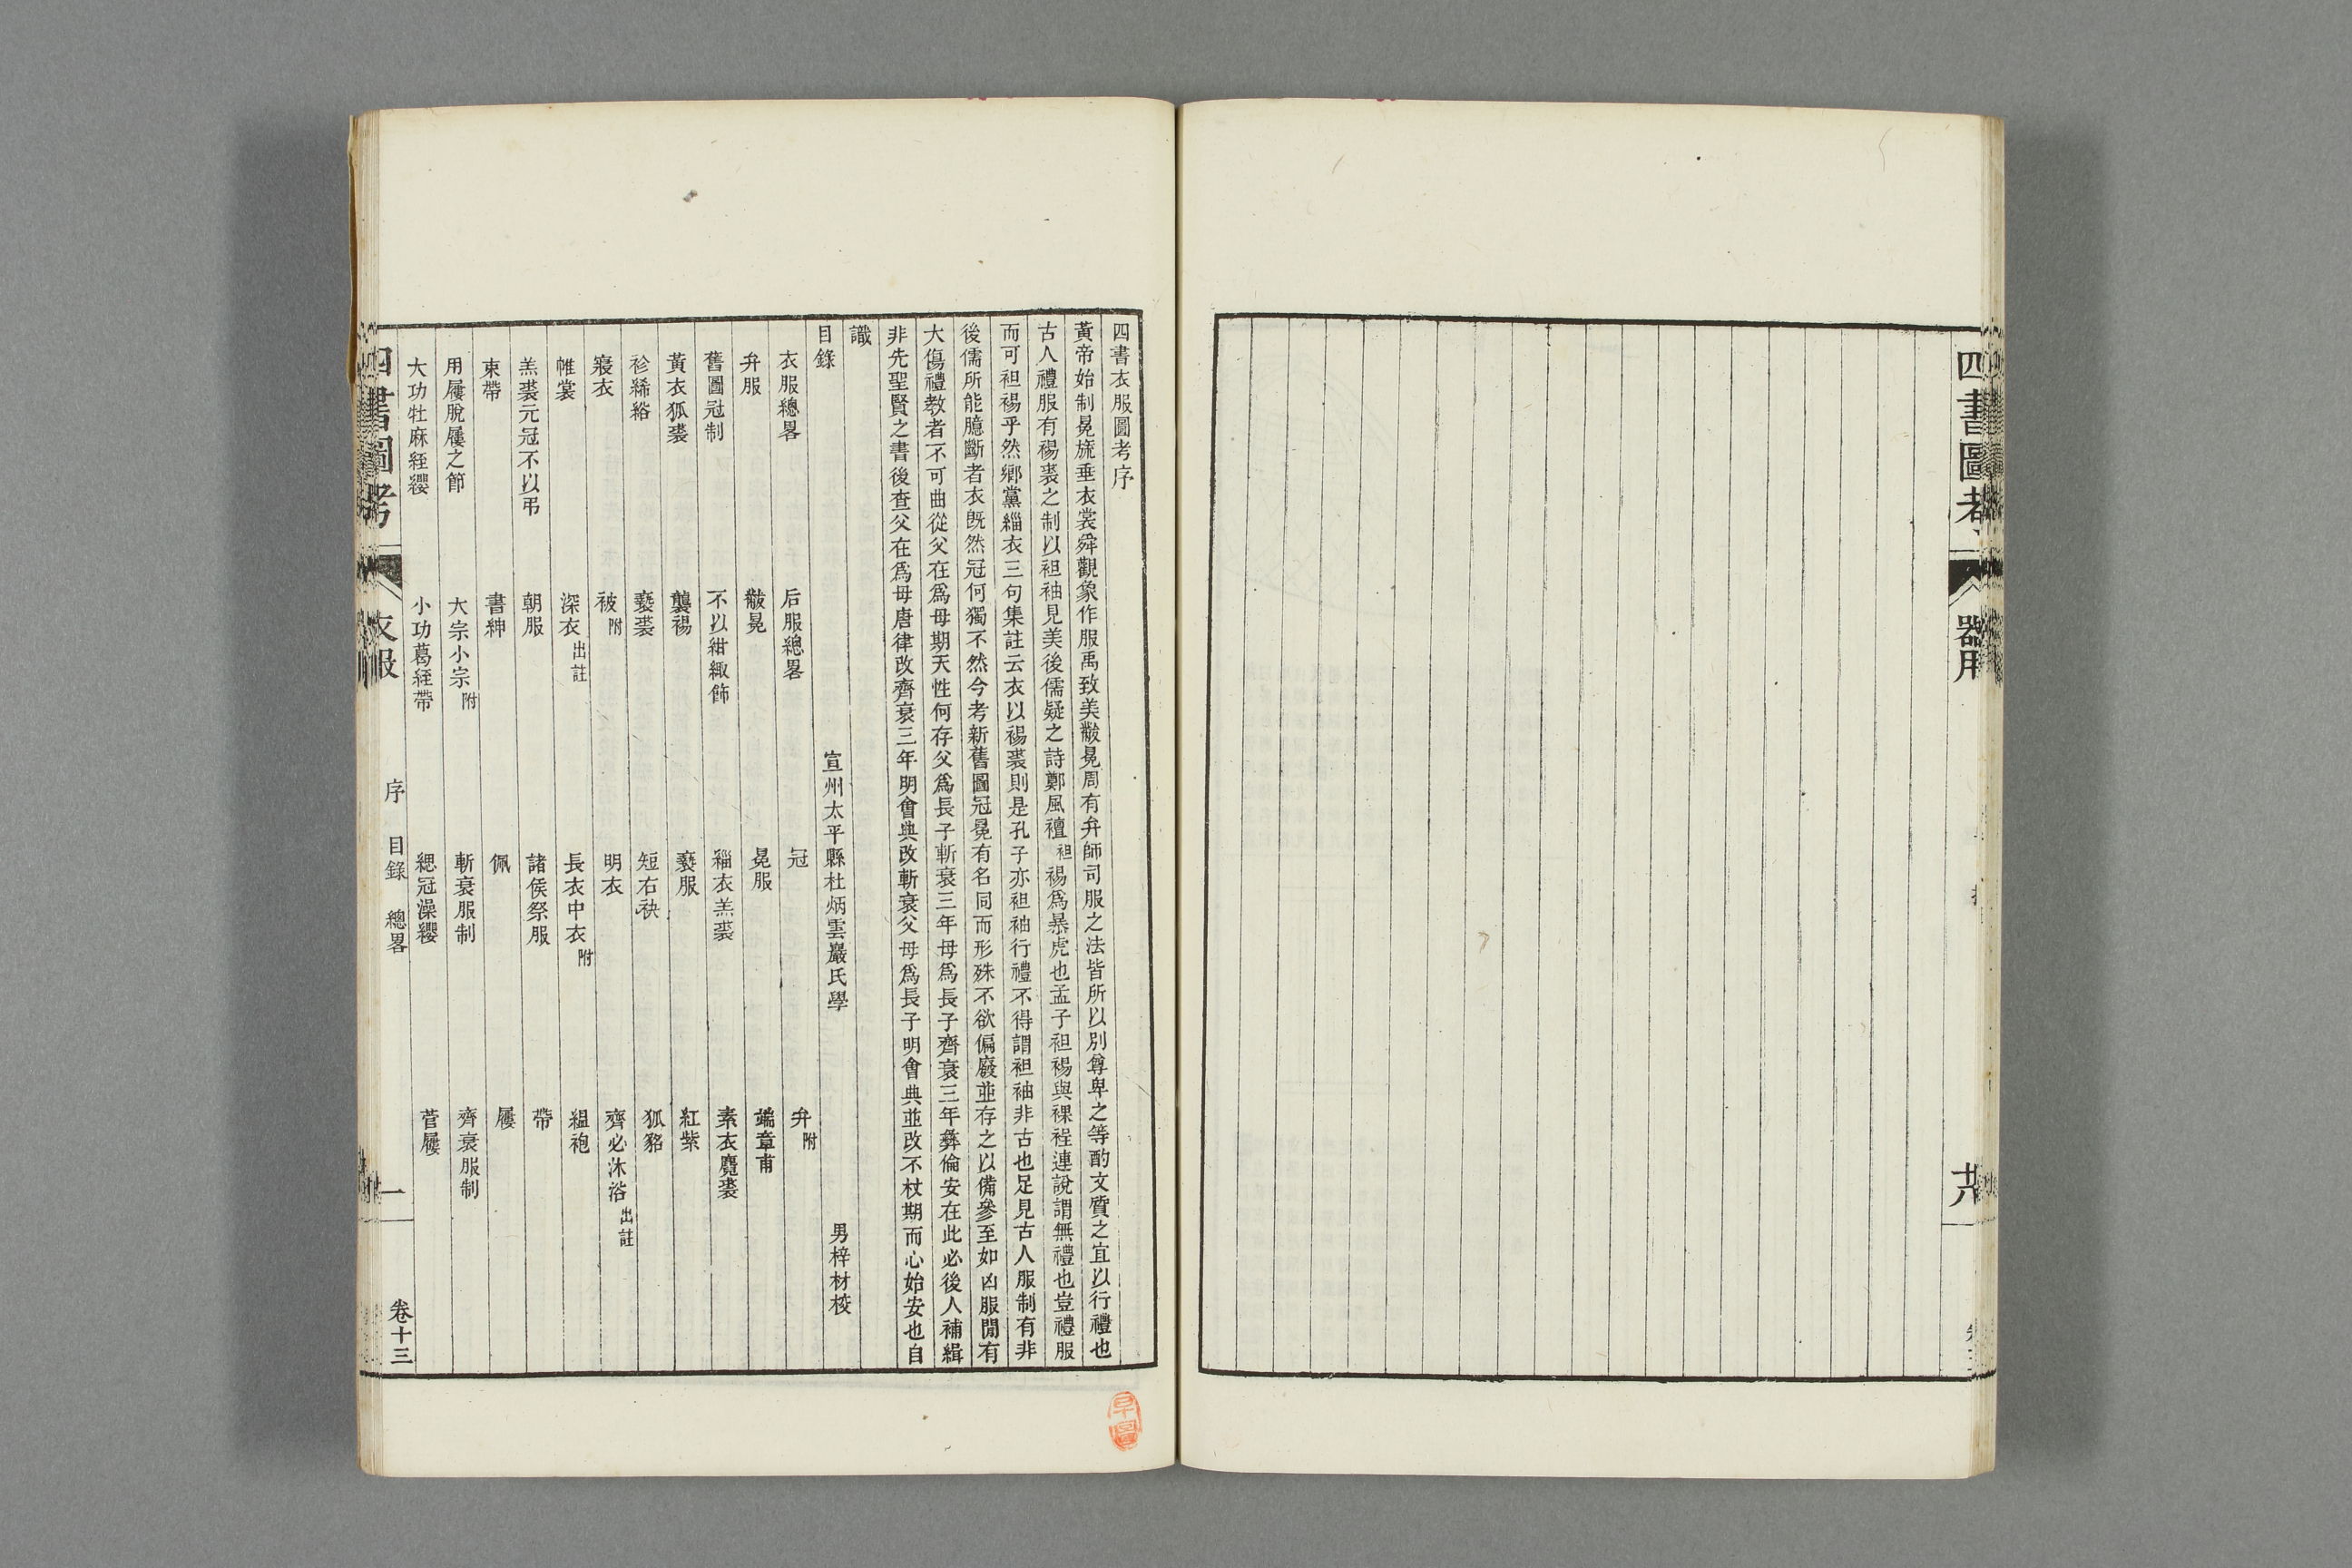 四書圖考
器用
四書衣服圖考序
黃帝始制冕旒垂衣裳舜觀象作服禹致美黻冕周有弁師司服之法皆所以別尊卑之等酌文質之宜以行禮也
古人禮服有裼裘之制以袒袖見美後儒疑之詩鄭風襢袒裼爲暴虎也孟子袒裼與裸裎連說謂無禮也豈禮服
而可袒裼乎然鄉黨緇衣三句集註云衣以裼裘則是孔子亦袒袖行禮不得謂袒袖非古也足見古人服制有非
後儒所能臆斷者衣既然冠何獨不然今考新舊圖冠冕有名同而形殊不欲偏廢並存之以備參至如凶服閒有
大傷禮教者不可曲從父在爲母期天性何存父爲長子斬衰三年母爲長子齊衰三年彝倫安在此必後人補緝
非先聖賢之書後查父在爲母唐律改齊衰三年明會典改斬衰父母爲長子明會典並改不杖期而心始安也自
識
目錄 宣州太平縣杜炳雲巖氏學 男梓材校
衣服總畧 后服總畧 冠 弁附
弁服 黻冕 冕服 端章甫
舊圖冠制 不以紺緅飾 緇衣羔裘 素衣麑裘
黃衣狐裘 襲裼 褻服 紅紫
袗絺綌 褻裘 短右袂 狐貉
寢衣 被附 明衣 齊必沐浴出註
帷裳 深衣出註 長衣中衣附 縕袍
羔裘元冠不以弔 朝服 諸侯祭服 帶
束帶 書紳 佩 屨
用屨脫屨之節 大宗小宗附 斬衰服制 齊衰服制
大功牡麻絰纓 小功葛絰帶 緦冠澡纓 菅屨
四書圖考 衣服 序 目錄 總畧 一 卷十三